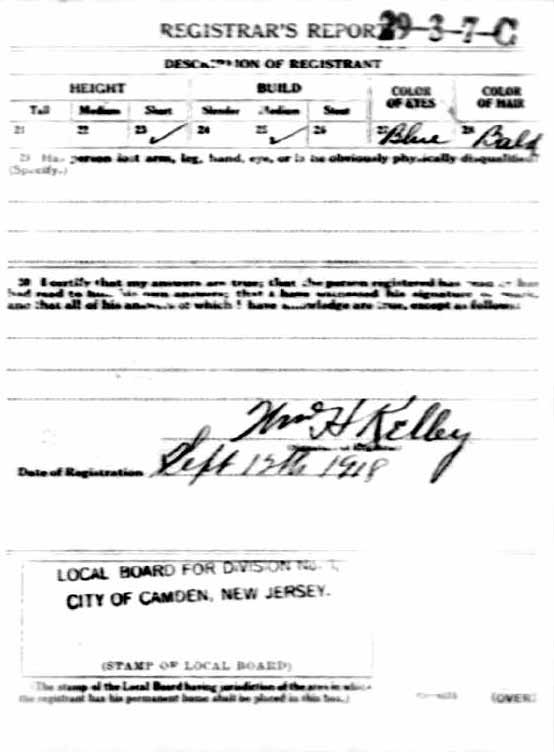 REGISTRAR'S REPORT 29-3-7-C
DESCRIPTION OF REGISTRANT
HEIGHT BUILD COLOR OF EYES COLOR OF HAIR
Tall Medium Short Slender Medium Stout
21 22 23 ✓ 24 25 ✓ 26 27 Blue 28 Bald
29 Has person lost arm, leg, hand, eye, or is he obviously physically disqualified?
(Specify.)
30 I certify that my answers are true; that the person registered has read or has
had read to him his own answers; that I have witnessed his signature or mark,
and that all of his answers of which I have knowledge are true, except as follows:
Wm H Kelley
Date of Registration Sept 12th 1918
LOCAL BOARD FOR DIVISION No. 1,
CITY OF CAMDEN, NEW JERSEY.
(STAMP OF LOCAL BOARD)
(The stamp of the Local Board having jurisdiction of the area in which
the registrant has his permanent home shall be placed in this box.)
(OVER)